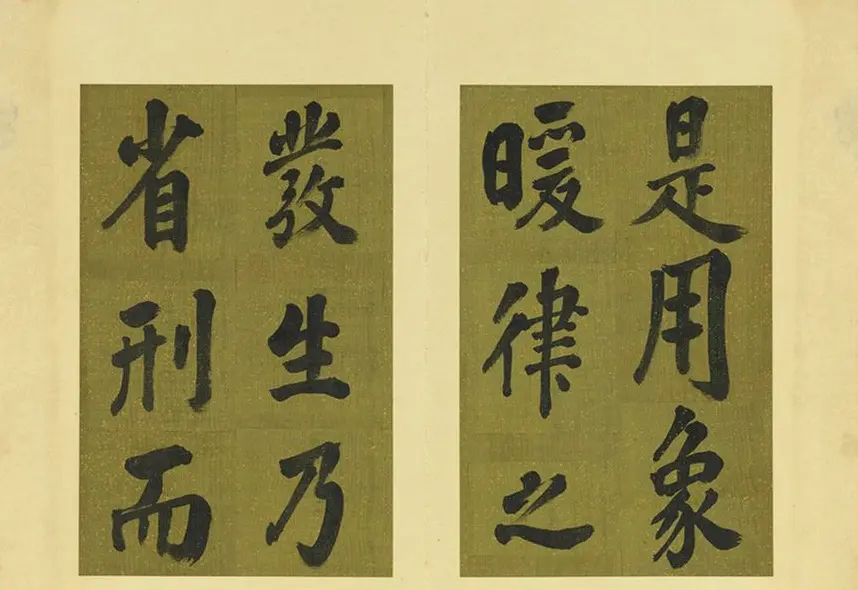 是用象
暖律之
發生乃
省刑而